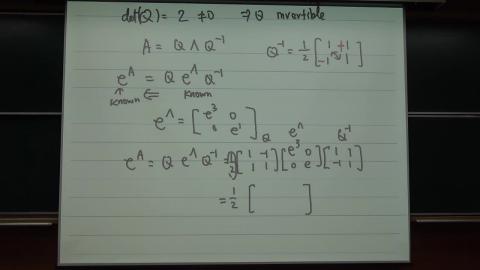 det(Q) = 2 ≠ 0 ⇒ Q invertible
A = Q Λ Q⁻¹ Q⁻¹ = 1/2 [1 +1; -1 1]
e^A = Q e^Λ Q⁻¹
known ⇐ known
e^Λ = [e³ 0; 0 e¹]
Q e^Λ Q⁻¹
e^A = Q e^Λ Q⁻¹ = 1/2 [1 -1; 1 1] [e³ 0; 0 e] [1 1; -1 1]
= 1/2 [ ]